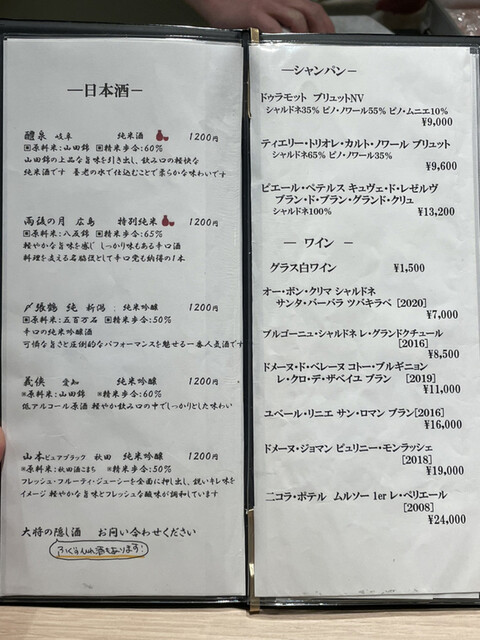 ―日本酒―
醴泉 岐阜 純米酒 1200円
▣原料米:山田錦 ▣精米歩合:60%
山田錦の上品な旨味を引き出し、飲み口の軽快な
純米酒です 養老の水で仕込むことで柔らかな味わいです
雨後の月 広島 特別純米 1200円
▣原料米:八反錦 ▣精米歩合:65%
軽やかな旨味を感じ しっかり味もある辛口酒
料理を支える名脇役として辛口党も納得の1本
〆張鶴 純 新潟 : 純米吟醸 1200円
▣原料米:五百万石 ▣精米歩合:50%
辛口の純米吟醸酒
可憐な旨さと圧倒的なパフォーマンスを魅せる一番人気酒です
義侠 愛知 純米吟醸 1200円
※原料米:山田錦 ※精米歩合:60%
低アルコール原酒 軽やか飲み口の中でしっかりとした味わい
山本ピュアブラック 秋田 純米吟醸 1200円
※原料米:秋田酒こまち ※精米歩合:50%
フレッシュ・フルーティ・ジューシーを全面に押し出し、鋭いキレ味を
イメージ 軽やかな旨味とフレッシュな酸味が調和しています
大将の隠し酒 お問い合わせください
―シャンパン―
ドゥラモット ブリュットNV
シャルドネ35% ピノ・ノワール55% ピノ・ムニエ10%
¥9,000
ティエリー・トリオレ・カルト・ノワール ブリュット
シャルドネ65% ピノ・ノワール35%
¥9,600
ピエール・ペテルス キュヴェ・ド・レゼルヴ
ブラン・ド・ブラン・グランド・クリュ
シャルドネ100%
¥13,200
― ワイン ―
グラス白ワイン ¥1,500
オー・ボン・クリマ シャルドネ
サンタ・バーバラ ツバキラベ [2020]
¥7,000
ブルゴーニュ・シャルドネ レ・グランドクチュール
[2016]
¥8,500
ドメーヌ・ド・ベレーヌ コトー・ブルギニョン
レ・クロ・デ・ザベイユ ブラン [2019]
¥11,000
ユベール・リニエ サン・ロマン ブラン[2016]
¥16,000
ドメーヌ・ジョマン ピュリニー・モンラッシェ
[2018]
¥19,000
ニコラ・ポテル ムルソー 1er レ・ペリエール
[2008]
¥24,000